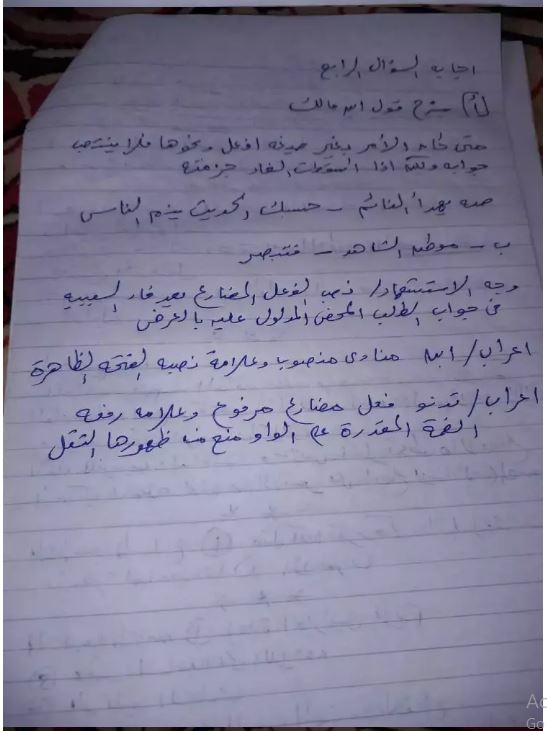 اجابه السؤال الرابع
(أ) شرح قول ابن مالك
متى كان الأمر بغير صيغه افعل ونحوها فلا ينتصب
جوابه ولكنه اذا اسقطت الفاء جزمته
صه يهدأ النائم - حسبك الحديث ينم الناس
ب - موطن الشاهد - فتبصر
وجه الاستشهاد / نصب الفعل المضارع بعد فاء السببيه
فى جواب الطلب المحض المدلول عليه بالعرض
اعراب / ابن منادى منصوبا وعلامة نصبه الفتحه الظاهرة
اعراب / تدنو فعل مضارع مرفوع وعلامه رفعه
الضمة المقدرة على الواو منع من ظهورها الثقل
Ac
Go